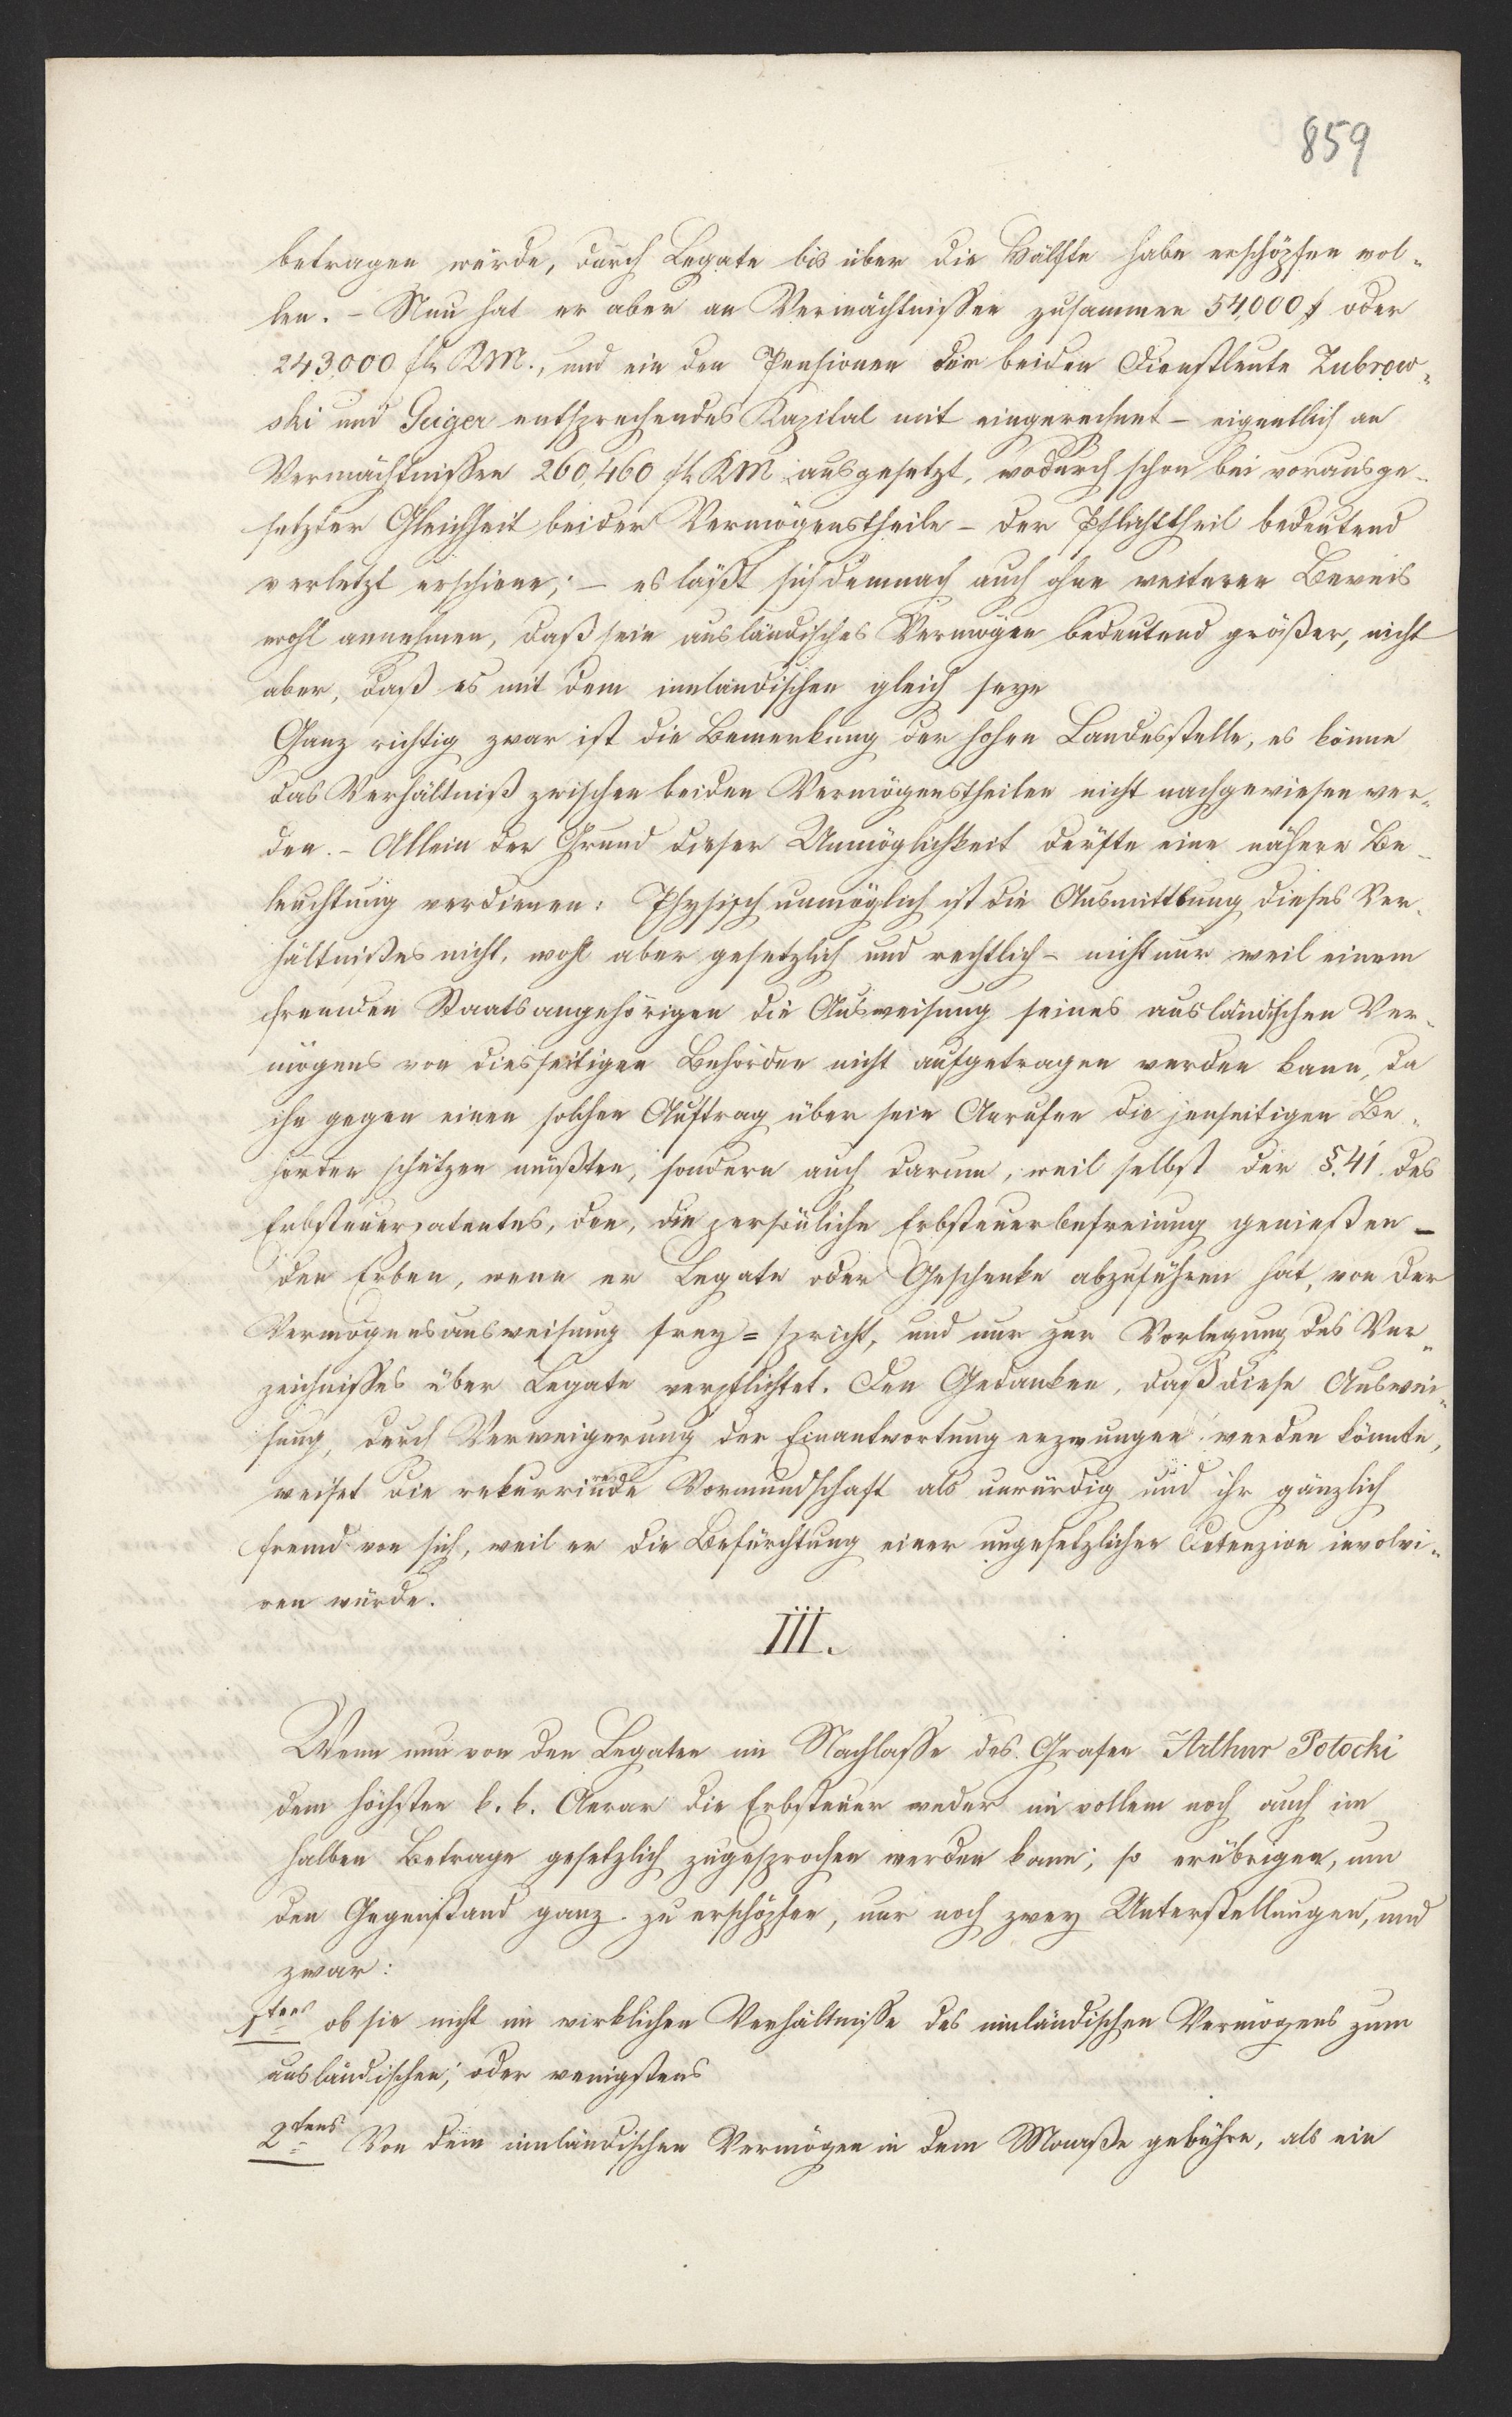 859
betragen würde, durch Legate bis über die Hälfte habe erschöpfen wol-
len. – Nun hat er aber an Vermächtnissen zusammen 54,000 # oder
243,000 fl. KM., und ein den Pensionen der beiden Dienstleute Zubrow-
ski und Geiger entsprechendes Kapital mit eingerechnet – eigentlich an
Vermächtnissen 260,460 fl. KM. ausgesetzt, wodurch schon bei vorausge-
setzter Gleichheit beider Vermögenstheile – der Pflichttheil bedeutend
verletzt erschiene; – es läßt sich demnach auch ohne weiteren Beweis
wohl annehmen, daß sein ausländisches Vermögen bedeutend größer, nicht
aber, daß es mit dem inländischen gleich seye
Ganz richtig zwar ist die Bemerkung der hohen Landesstelle, es könne
das Verhältniß zwischen beiden Vermögenstheilen nicht nachgewiesen wer-
den. – Allein der Grund dieser Unmöglichkeit dürfte eine nähere Be-
leuchtung verdienen: Physisch unmöglich ist die Ausmittlung dieses Ver-
hältnißes nicht, wohl aber gesetzlich und rechtlich – nicht nur weil einem
fremden Staatsangehörigen die Ausweisung seines ausländischen Ver-
mögens von diesseitigen Behörden nicht aufgetragen werden kann, da
ihn gegen einen solchen Auftrag über sein Anrufen die jenseitigen Be-
hörden schützen müßten, sondern auch darum, weil selbst der §. 41. des
Erbsteuerpatentes, den, die persönliche Erbsteuerbefreiung genießen-
den Erben, wenn er Legate oder Geschenke abzuführen hat, von der
Vermögensausweisung frey=spricht, und nur zur Vorlegung des Ver-
zeichnisses über Legate verpflichtet. Den Gedanken, daß diese Auswei-
sung, durch Verweigerung der Einantwortung erzwungen werden könnte,
weiset die rekurrirende Vormundschaft als unwürdig und ihr gänzlich
fremd von sich, weil er die Befürchtung einer ungesetzlichen Detenzion involvi-
ren würde.
III.
Wenn nun von den Legaten im Nachlasse des Grafen Arthur Potocki
dem höchsten k. k. Aerar die Erbsteuer weder im vollem noch auch im
halben Betrage gesetzlich zugesprochen werden kann; so erübrigen, um
den Gegenstand ganz zu erschöpfen, nur noch zwey Unterstellungen, und
zwar:
1tens ob sie nicht im wirklichen Verhältnisse des inländischen Vermögens zum
ausländischen; oder wenigstens
2tens Von dem inländischen Vermögen in dem Maaße gebühre, als ein